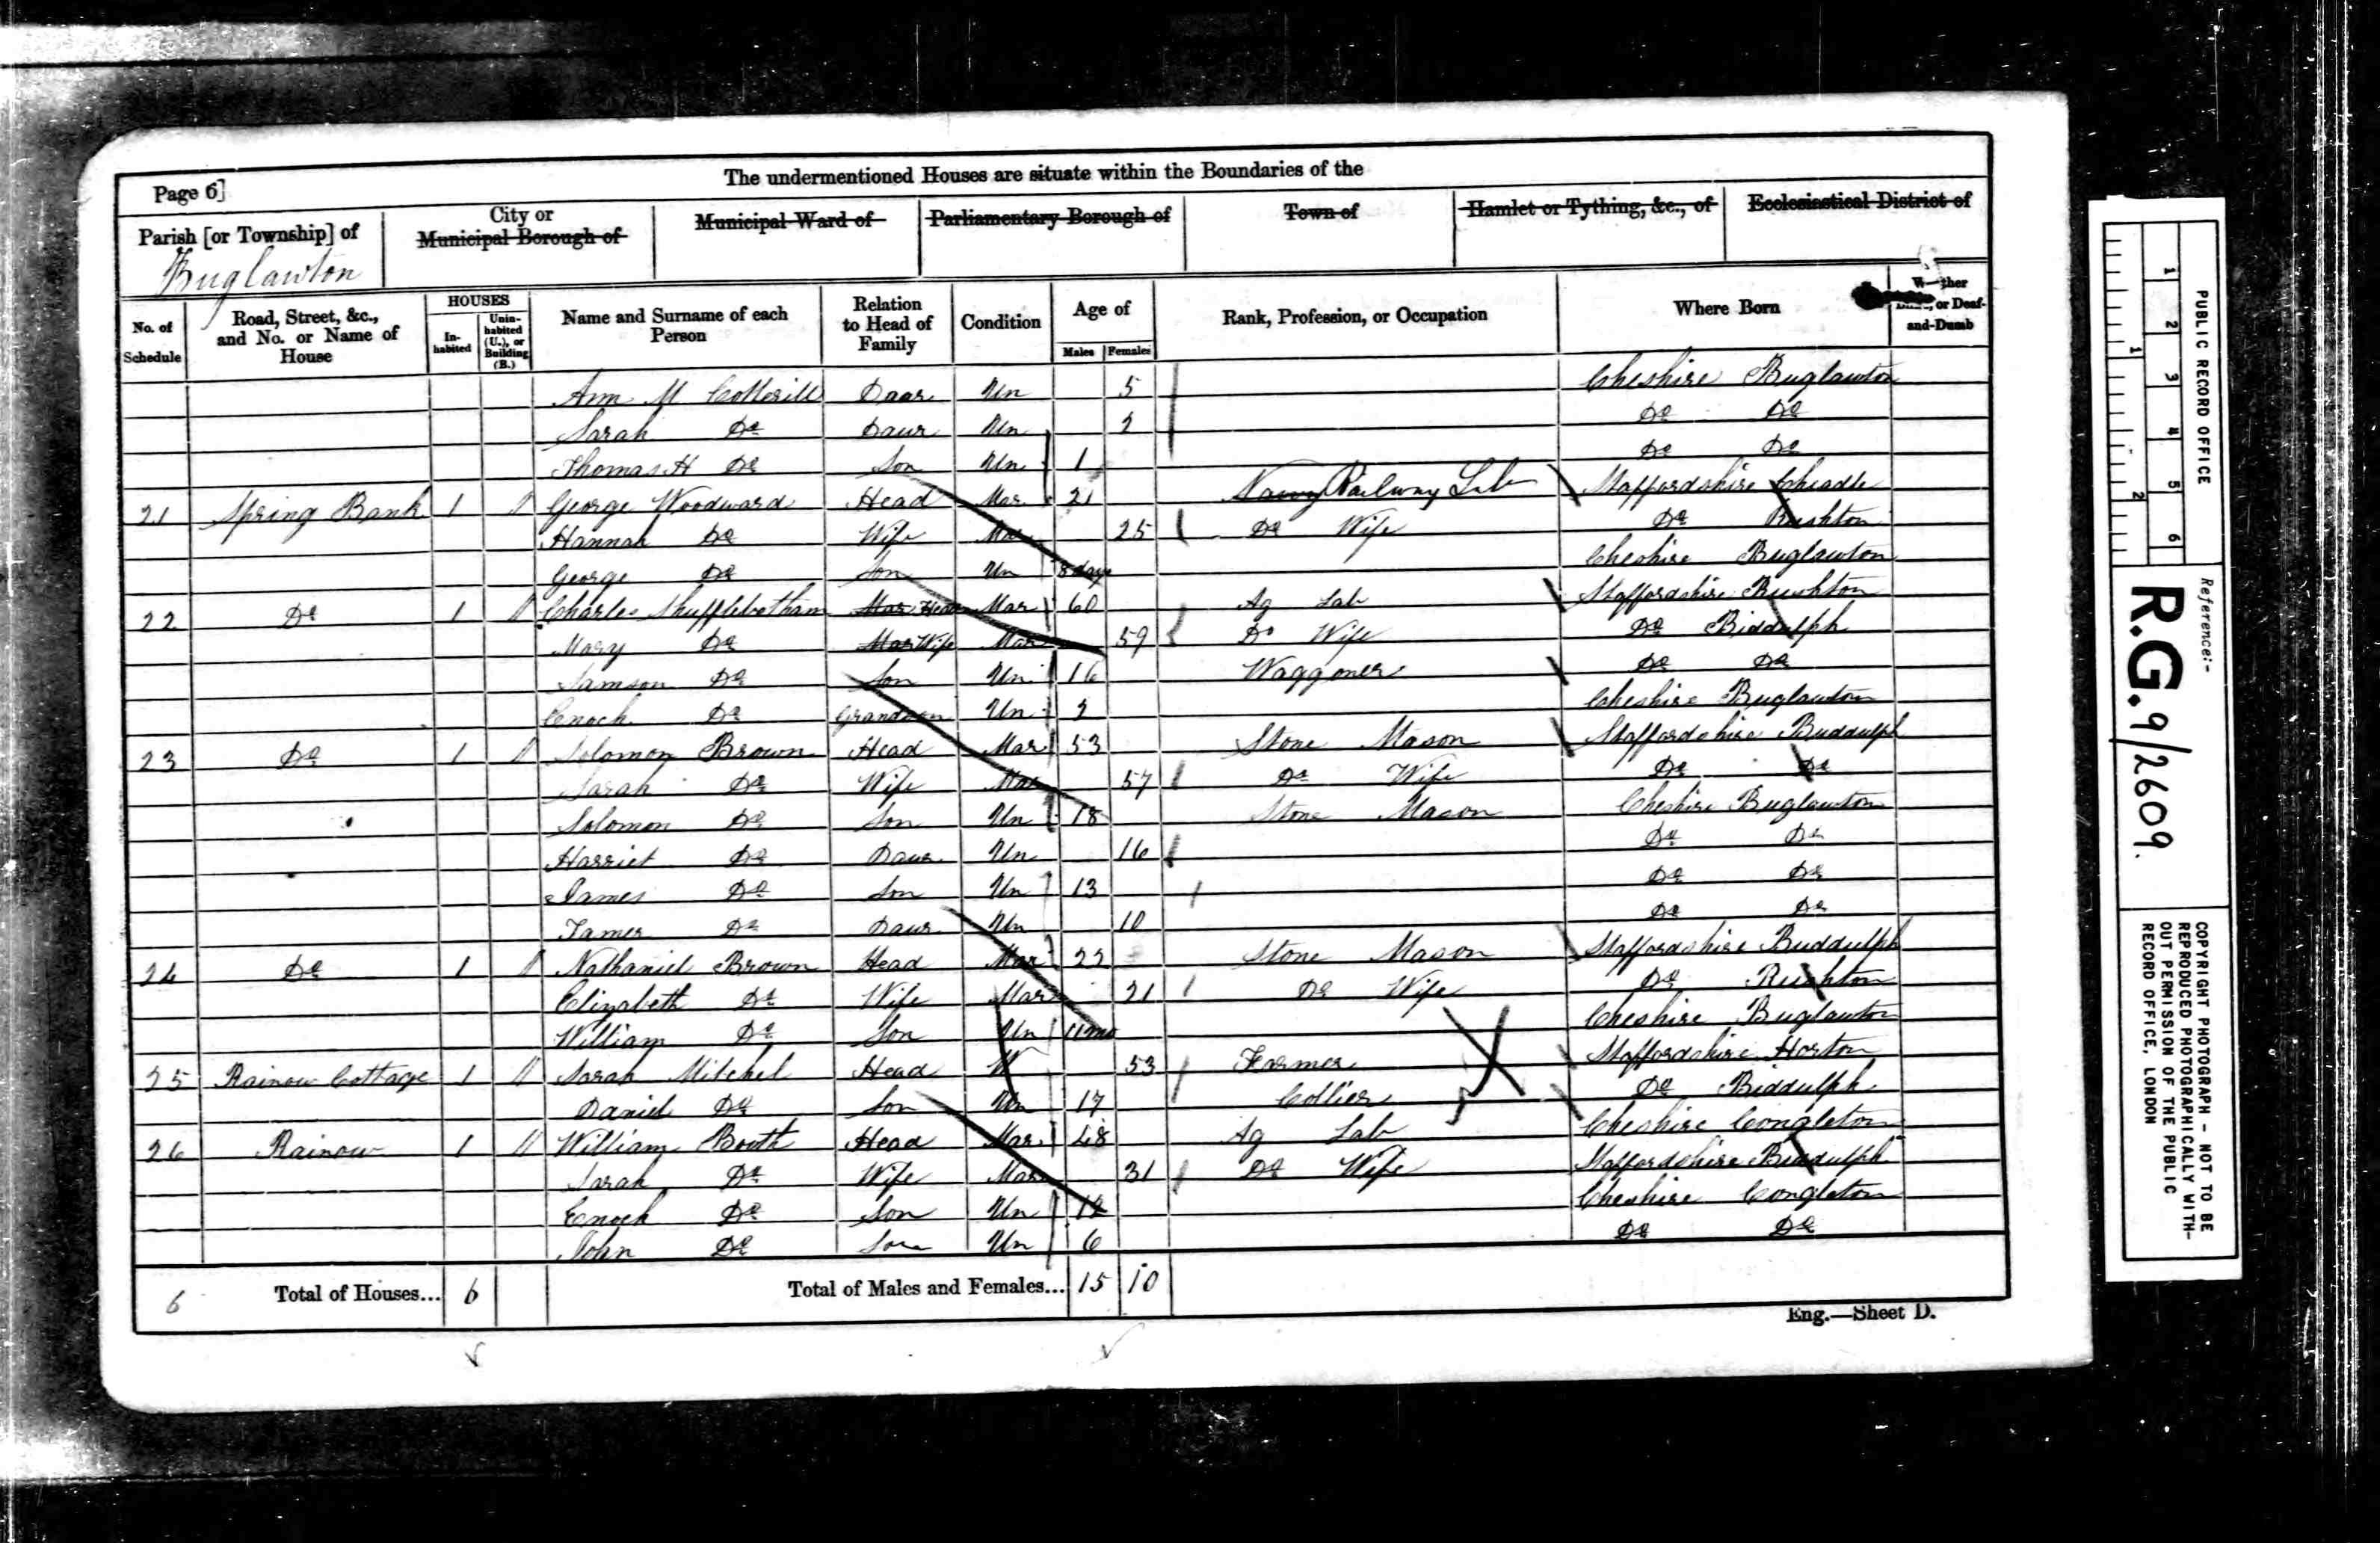 Page 6]
The undermentioned Houses are situate within the Boundaries of the
Parish [or Township] of
Buglawton
City or
Municipal Borough of
Municipal Ward of
Parliamentary Borough of
Town of
Hamlet or Tything, &c., of
Ecclesiastical District of
No. of Schedule
Road, Street, &c., and No. or Name of House
HOUSES
In-habited
Unin-habited (U.), or Building (B.)
Name and Surname of each Person
Relation to Head of Family
Condition
Age of
Males
Females
Rank, Profession, or Occupation
Where Born
or Deaf-and-Dumb
Ann M Cotterill Daur Un 5 Cheshire Buglawton
Sarah Do Daur Un 2 Do Do
Thomas H Do Son Un 1 Do Do
21 Spring Bank 1 George Woodward Head Mar 21 Railway Lab Staffordshire Cheadle
Hannah Do Wife Mar 25 Do Wife Do Rushton
George Do Son Un 8 days Cheshire Buglawton
22 Do 1 Charles Shufflebotham Mar Head Mar 60 Ag Lab Staffordshire Rushton
Mary Do Mar Wife Mar 59 Do Wife Do Biddulph
Samson Do Son Un 16 Waggoner Do Do
Enoch Do Grandson Un 2 Cheshire Buglawton
23 Do 1 Solomon Brown Head Mar 53 Stone Mason Staffordshire Buddulph
Sarah Do Wife Mar 57 Do Wife Do Do
Solomon Do Son Un 18 Stone Mason Cheshire Buglawton
Harriet Do Daur Un 16 Do Do
James Do Son Un 13 Do Do
Tamer Do Daur Un 10 Do Do
24 Do 1 Nathaniel Brown Head Mar 22 Stone Mason Staffordshire Buddulph
Elizabeth Do Wife Mar 21 Do Wife Do Rushton
William Do Son Un 11 mo Cheshire Buglawton
25 Rainow Cottage 1 Sarah Mitchel Head W 53 Farmer Staffordshire Horton
Daniel Do Son Un 17 Collier Do Biddulph
26 Rainow 1 William Booth Head Mar 48 Ag Lab Cheshire Congleton
Sarah Do Wife Mar 31 Do Wife Staffordshire Biddulph
Enoch Do Son Un 12 Cheshire Congleton
John Do Son Un 6 Do Do
6 Total of Houses... 6 Total of Males and Females... 15 10
Eng.—Sheet D.
PUBLIC RECORD OFFICE
1 2 3 4 5 6
1 2
Reference:-
R.G. 9/2609.
COPYRIGHT PHOTOGRAPH - NOT TO BE
REPRODUCED PHOTOGRAPHICALLY WITH-
OUT PERMISSION OF THE PUBLIC
RECORD OFFICE, LONDON